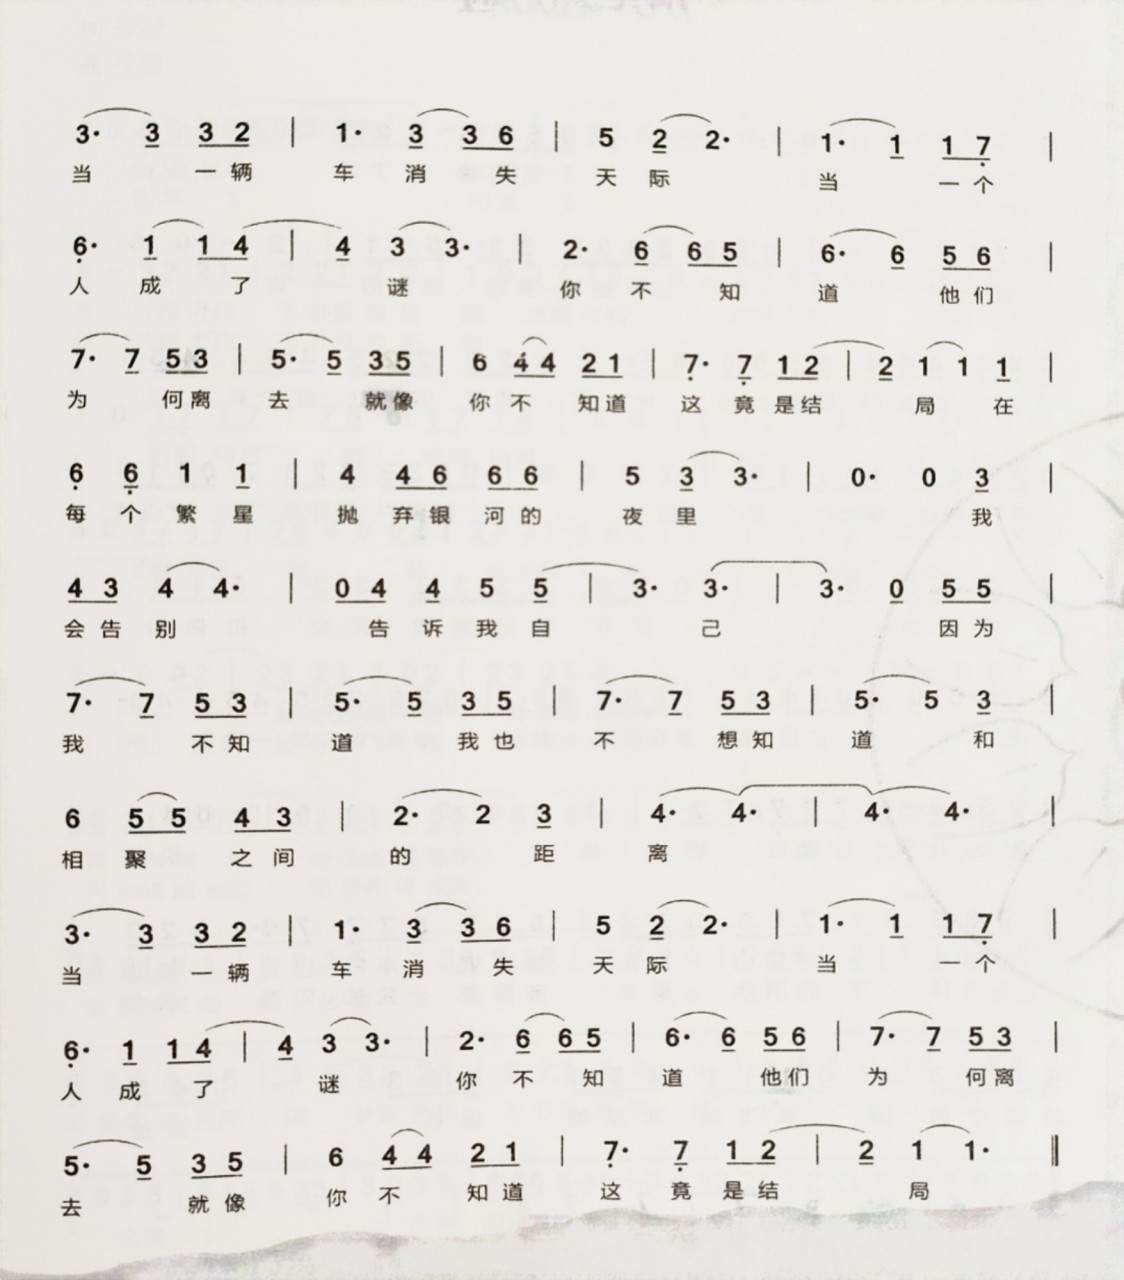 3· 3 3 2 | 1· 3 3 6 | 5 2 2· | 1· 1 1 7 |
当 一 辆 车 消 失 天 际 当 一 个
6· 1 1 4 | 4 3 3· | 2· 6 6 5 | 6· 6 5 6 |
人 成 了 谜 你 不 知 道 他 们
7· 7 5 3 | 5· 5 3 5 | 6 4 4 2 1 | 7· 7 1 2 | 2 1 1 1 |
为 何 离 去 就 像 你 不 知 道 这 竟 是 结 局 在
6 6 1 1 | 4 4 6 6 6 | 5 3 3· | 0· 0 3 |
每 个 繁 星 抛 弃 银 河 的 夜 里 我
4 3 4 4· | 0 4 4 5 5 | 3· 3· | 3· 0 5 5 |
会 告 别 告 诉 我 自 己 因 为
7· 7 5 3 | 5· 5 3 5 | 7· 7 5 3 | 5· 5 3 |
我 不 知 道 我 也 不 想 知 道 和
6 5 5 4 3 | 2· 2 3 | 4· 4· | 4· 4· |
相 聚 之 间 的 距 离
3· 3 3 2 | 1· 3 3 6 | 5 2 2· | 1· 1 1 7 |
当 一 辆 车 消 失 天 际 当 一 个
6· 1 1 4 | 4 3 3· | 2· 6 6 5 | 6· 6 5 6 | 7· 7 5 3 |
人 成 了 谜 你 不 知 道 他 们 为 何 离
5· 5 3 5 | 6 4 4 2 1 | 7· 7 1 2 | 2 1 1· ‖
去 就 像 你 不 知 道 这 竟 是 结 局